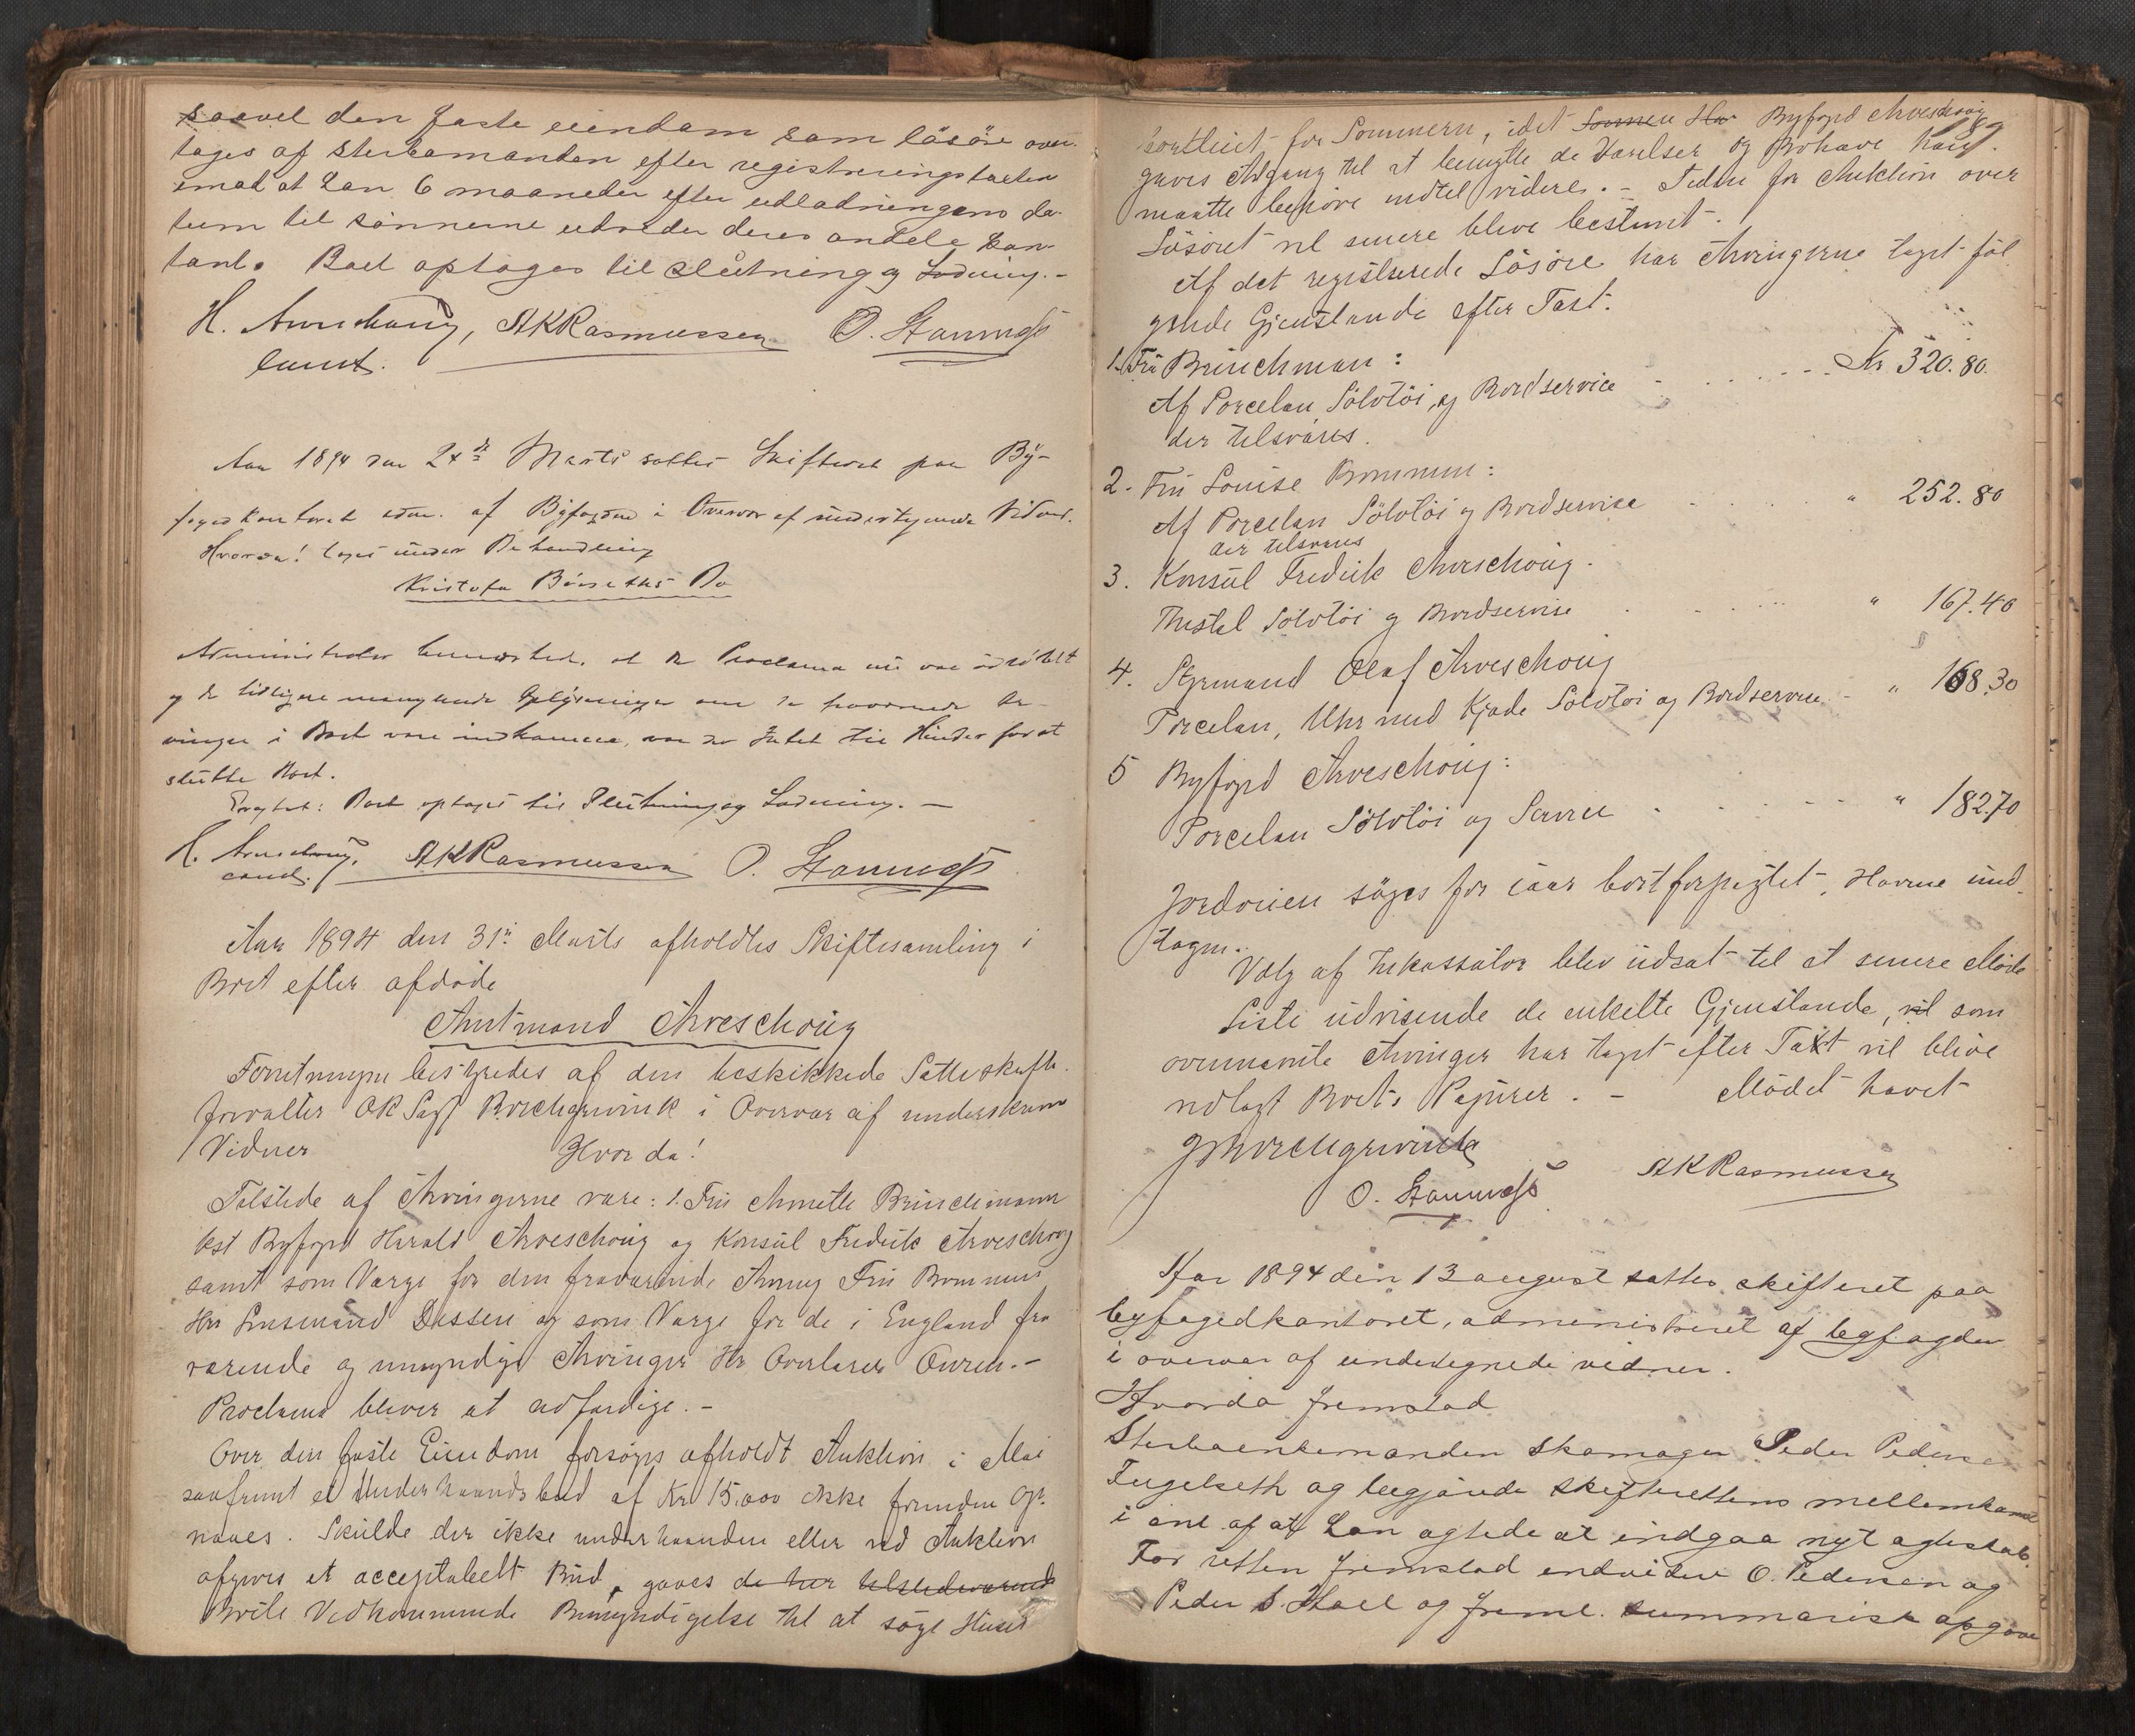 saavel den faste eiendom som løsøre over-
tages af sterbomanden efter registreringstaxten
imod at han 6 maaneder efter udlodningens da-
tum til sønnerne udreder deres andele kon-
tant. Boet optages til slutning og Lodning. -
H. Arveschoug, AKRasmussen O. Stavnes
const.
Aar 1894 den 24de Marts sattes Skifteret paa By-
fogedkontoret adm. af Byfogden i Overvær af undertegnede Vidner.
Hvorda! toges under Behandling
Bo
Administrator bemærkede, at da Proclama nu var udløbet
og de tidligere manglende Oplysninger om de fraværende Ar-
vinger i Boet vare indkomne, var der Intet til Hinder for at
slutte Boet.
Eragtet: Boet optages til Slutning og Lodning. -
H. Arveschoug, AKRasmussen O. Stavnes
const.
Aar 1894 den 31te Marts afholdtes Skiftesamling i
Boet efter afdøde
Amtmand Arveschoug
Forretningen bestyredes af den beskikkede Sætteskifte-
forvalter OR Sagf Borchgrevink i Overvær af underskrevne
Vidner Hvor da!
Tilstede af Arvingerne vare: 1. Fru Annette Brinchmann
kst Byfogd Harald Arveschoug og Konsul Fredrik Arveschoug
samt som Værge for den fraværende Arving Fru Brommen
Hr Lensmand Dessen og som Værge for de i England fra
værende og umyndige Arvinger Hr Overlærer Owren. -
Proclama bliver at udfærdige. -
Over den faste Eiendom forsøges afholdt Auktion i Mai
saafremt et Underhaandsbud af Kr 15.000 ikke forinden op-
naaes. Skulde der ikke underhaanden eller ved Auktion
afgives et acceptabelt Bud, gaves de her tilstedeværende
Boets Vedkommende Bemyndigelse til at søge Huset
bortleiet for Sommeren, idet Sønnen Hr Byfogd Arveschoug
gaves Adgang til at benytte de Værelser og Bohave han
maatte behøve indtil videre. - Tiden for Auktion over
Løsøret vil senere blive bestemt.
Af det registrerede Løsøre har Arvingerne taget føl
gende Gjenstande efter Taxt:
1. Fru Brinchman:
Af Porcelan, Sølvtøi, og Bordservice - Kr 320.80.
der tilsvares.
2. Fru Louise Brommen:
Af Porcelan Sølvtøi og Bordservice " 252.80
der tilsvares
3. Konsul Fredrik Arveschoug.
Sølvtøi og Bordservise " 167.40
4. Styrmand Olaf Arveschoug
Porcelan, Uhr med Kjæde Sølvtøi og Bordservise - " 168.30
5 Byfogd Arveschoug:
Porcelan Sølvtøi og Service " 182.70
Jordveien søges for iaar bortforpagtet, Havene und-
tagen.
Valg af Inkassator blev udsat til et senere Møde
Liste udvisende de enkelte Gjenstande, vil som
ovennævnte Arvinger har taget efter Taxt vil blive
vedlagt Boets Papirer. - Mødet hævet
Borchgrevink
O. Stavnes AKRasmussen
Aar 1894 den 13 august sattes skifteret paa
byfogedkontoret, administreret af byfogden
i overvær af undertegnede vidner.
Hvorda fremstod
Sterboenkemanden skomager Peder Pedersen
Fugelseth og begjærede skifterettens mellemkomst
i anl. af at han agtede at indgaa nyt ægteskab.
For retten fremstod endvidere O. Pedersen og
Peder S. Hoel og freml. summarisk opgave